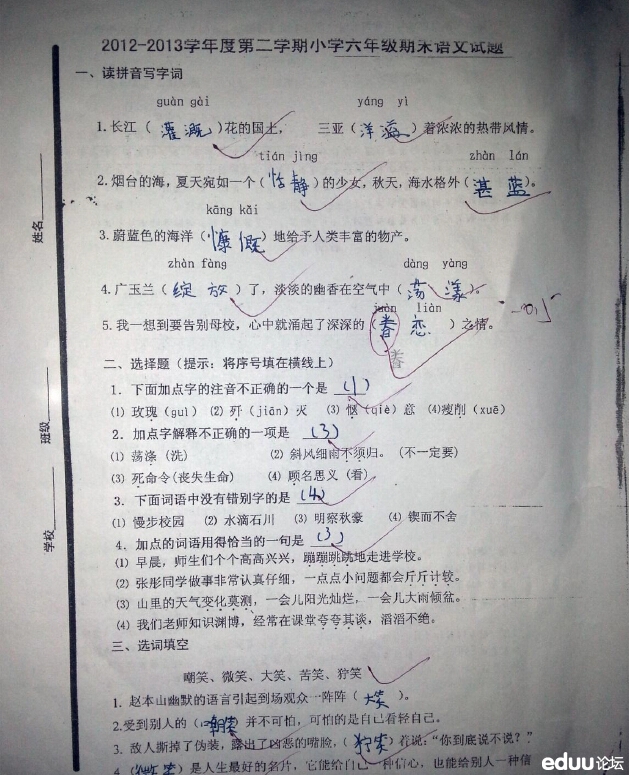 2012-2013学年度第二学期小学六年级期末语文试题
一、读拼音写字词
guàn gài yáng yì
1.长江（灌溉）花的国土， 三亚（洋溢）着浓浓的热带风情。
tián jìng zhàn lán
2.烟台的海，夏天宛如一个（恬静）的少女，秋天，海水格外（湛蓝）。
kāng kǎi
3.蔚蓝色的海洋（慷慨）地给予人类丰富的物产。
zhàn fàng dàng yàng
4.广玉兰（绽放）了，淡淡的幽香在空气中（荡漾）。
juàn liàn
5.我一想到要告别母校，心中就涌起了深深的（眷恋）之情。
眷
二、选择题（提示：将序号填在横线上）
1．下面加点字的注音不正确的一个是 (1)
⑴ 玫瑰（guì） ⑵ 歼（jiān）灭 ⑶ 惬（qiè）意 ⑷瘦削（xuē）
2．加点字解释不正确的一项是 (3)
⑴ 荡涤（洗） ⑵ 斜风细雨不须归。（不一定要）
⑶ 死命令(丧失生命） ⑷ 顾名思义（看）
3．下面词语中没有错别字的是 (4)
⑴ 慢步校园 ⑵ 水滴石川 ⑶ 明察秋豪 ⑷ 锲而不舍
4．加点的词语用得恰当的一句是 (3)
⑴ 早晨，师生们个个高高兴兴，蹦蹦跳跳地走进学校。
⑵ 张彤同学做事非常认真仔细，一点点小问题都会斤斤计较。
⑶ 山里的天气变化莫测，一会儿阳光灿烂，一会儿大雨倾盆。
⑷ 我们老师知识渊博，经常在课堂夸夸其谈，滔滔不绝。
三、选词填空
嘲笑、微笑、大笑、苦笑、狞笑
1．赵本山幽默的语言引起到场观众一阵阵（大笑）。
2.受到别人的（嘲笑）并不可怕，可怕的是自己看轻自己。
3．敌人撕掉了伪装，露出了凶恶的嘴脸，（狞笑）着说：“你到底说不说？”
4（微笑）是人生最好的名片，它能给自己一种信心，也能给别人一种信
姓名
班级
学校
eduu论坛